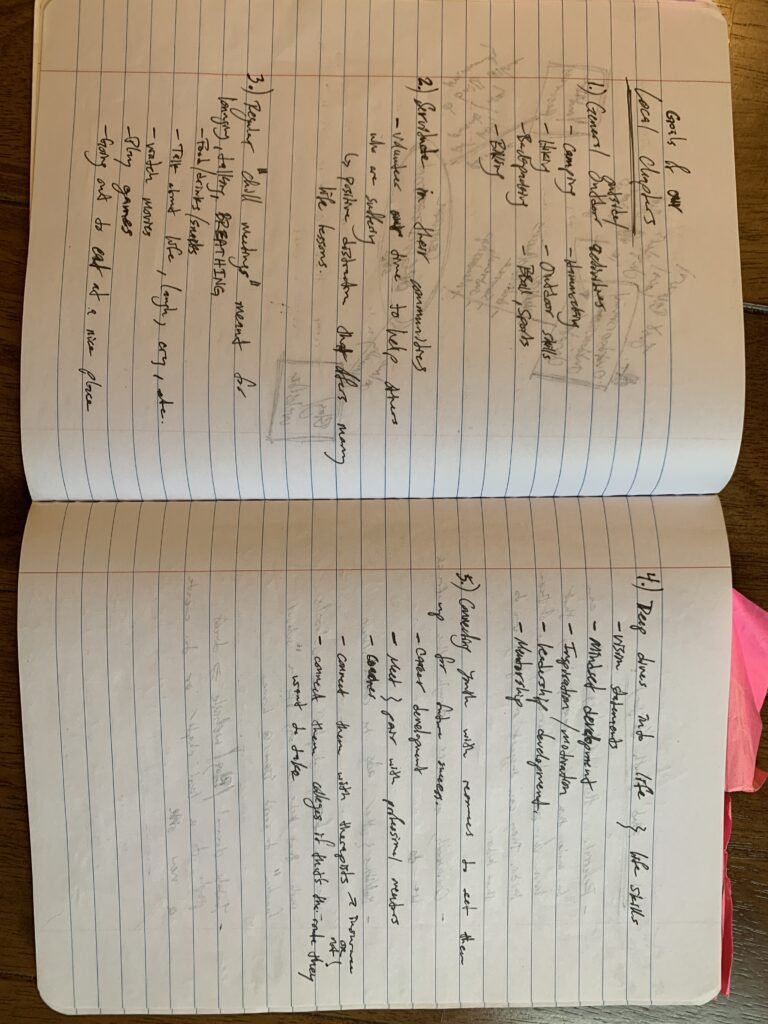 Goals of our
Local Chapters
1.) General outside/
Outdoor activities
- Camping - Hammocking
- Hiking - Outdoor skills
- Backpacking - Bball, sports
- Biking
2.) Servitude in their communities
- Volunteer time to help others
who are suffering
↳ positive distraction that offers many
life lessons.
3.) Regular "chill meetings" meant for
hanging, talking, BREATHING
- Food/drinks/snacks
- Talk about life, laugh, cry, etc.
- Watch movies
- Play games
- Going out to eat at a nice place
4.) Deep dives into life & life skills
- Vision statements
- Mindset development
- Inspiration/motivation
- leadership development
- Mentorship
5.) Connecting Youth with resources to set them
up for future success.
- Career development
- Meet & pair with professional mentors
- Coaches
- Connect them with therapists → insurance
or
not!
- connect them colleges if that's the route they
want to take